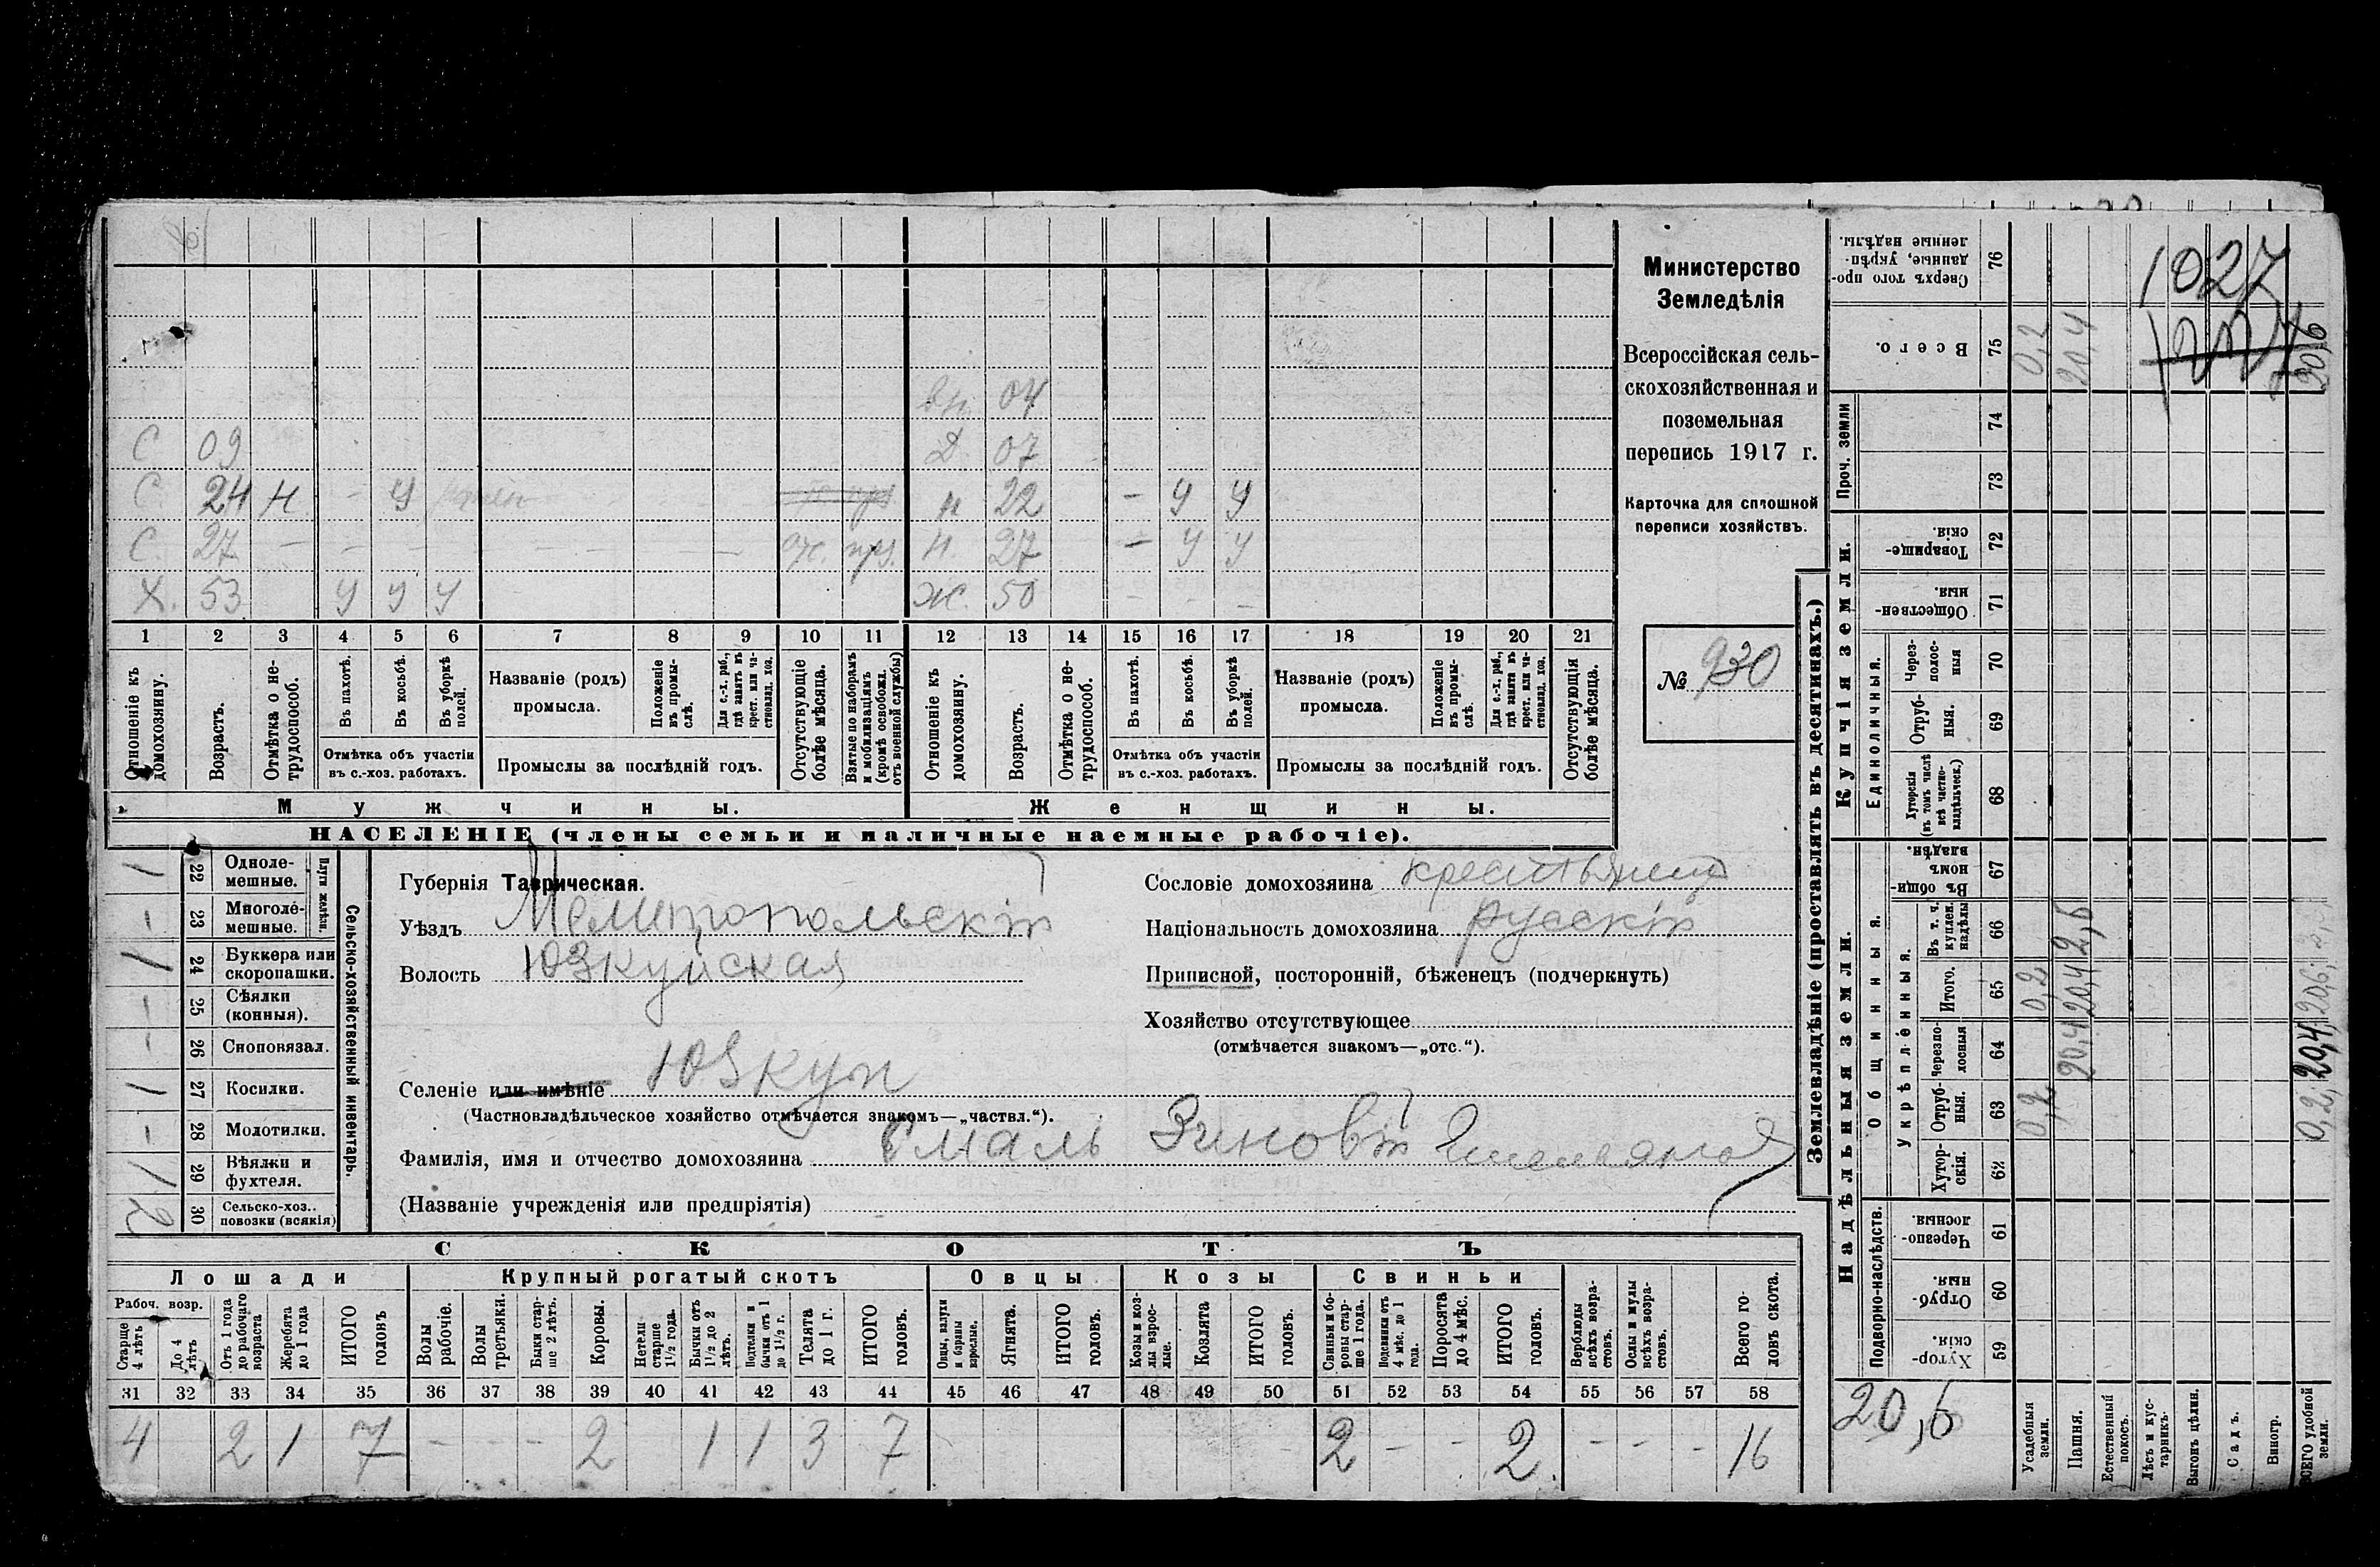 Министерство
Земледѣлія
Всероссійская сель-
скохозяйственная и
поземельная
перепись 1917 г.
Карточка для сплошной
переписи хозяйствъ.
№ 930
вн. 04
С 09 Д. 07
С 24 Н - У н 22 - У У
С. 27 - - - - - - - отс. пр. н. 27 - У У
Х. 53 У У У Ж. 50 - - -
1 2 3 4 5 6 7 8 9 10 11 12 13 14 15 16 17 18 19 20 21
Отношеніе къ домохозяину.
Возрастъ.
Отмѣтка о не-трудоспособ.
Въ пахотѣ.
Въ косьбѣ.
Въ уборкѣ полей.
Отмѣтка объ участіи
въ с.-хоз. работахъ.
Названіе (родъ)
промысла.
Положеніе въ промы-слѣ.
Для с.-х. раб., гдѣ занятъ въ крест. или ча-стновлад. хоз.
Промыслы за послѣдній годъ.
Отсутствующіе болѣе мѣсяца.
Взятые по наборамъ и мобилизаціямъ (кромѣ освобожд. отъ военной службы)
Отношеніе къ домохозяину.
Возрастъ.
Отмѣтка о не-трудоспособ.
Въ пахотѣ.
Въ косьбѣ.
Въ уборкѣ полей.
Отмѣтка объ участіи
въ с.-хоз. работахъ.
Названіе (родъ)
промысла.
Положеніе въ промы-слѣ.
Для с.-х. раб., гдѣ занята въ крест. или ча-стновлад. хоз.
Промыслы за послѣдній годъ.
Отсутствующія болѣе мѣсяца.
Мужчины. Женщины.
НАСЕЛЕНІЕ (члены семьи и наличные наемные рабочіе).
Сельско-хозяйственный инвентарь.
Плуги желѣзн.
1 22 Одноле-мешные.
- 23 Многоле-мешные.
1 24 Буккера или скоропашки.
- 25 Сѣялки (конныя).
- 26 Сноповязал.
1 27 Косилки.
- 28 Молотилки.
1 29 Вѣялки и фухтеля.
2 30 Сельско-хоз.. повозки (всякія)
Губернія Таврическая.
Уѣздъ Мелитопольскій
Волость Юзкуйская
Селеніе или имѣніе Юзкуи
(Частновладѣльческое хозяйство отмѣчается знакомъ—„частвл.“).
Сословіе домохозяина крестьянинъ
Національность домохозяина русскій
Приписной, посторонній, бѣженецъ (подчеркнуть)
Хозяйство отсутствующее
(отмѣчается знакомъ—„отс.“).
Фамилія, имя и отчество домохозяина Смаль Зиновій Емельяновъ
(Названіе учрежденія или предпріятія)
СКОТЪ
Лошади Крупный рогатый скотъ Овцы Козы Свиньи
Рабоч. возр.
Старше 4 лѣтъ
До 4 лѣтъ
Отъ 1 года до рабочаго возраста
Жеребята до 1 года
ИТОГО головъ
Волы рабочіе.
Волы третьяки.
Быки стар-ше 2 лѣтъ.
Коровы.
Нетели старше 1½ года.
Бычки отъ 1½ до 2 лѣтъ.
Подтелки и бычки отъ 1 до 1½ г.
Телята до 1 г.
ИТОГО головъ.
Овцы, валухи и бараны взрослые.
Ягнята.
ИТОГО головъ.
Козы и коз-лы взрос-лые.
Козлята
ИТОГО головъ.
Свиньи и бо-ровы стар-ше 1 года.
Подсвинки отъ 4 мѣс. до 1 года.
Поросята до 4 мѣс.
ИТОГО головъ.
Верблюды всѣхъ возра-стовъ.
Ослы и мулы всѣхъ возра-стовъ.
Всего го-ловъ скота.
31 32 33 34 35 36 37 38 39 40 41 42 43 44 45 46 47 48 49 50 51 52 53 54 55 56 57 58
4 2 1 7 - - - 2 1 1 3 7 2 - - 2. - - - 16
Землевладѣніе (проставлять въ десятинахъ.)
Купчія земли.
Проч. земли
Единоличныя.
Надѣльныя земли.
Общинныя.
Укрѣпленныя.
Подворно-наслѣдств.
Сверхъ того про-данные, укрѣп-ленные надѣлы. 76
Всего. 75 0,2 20,4 20,6
74
73
Товарище-скія 72
Обществен-ныя. 71
Через-полос-ныя 70
Отруб-ныя. 69
Хуторскія (въ томъ числѣ всѣ частно-владѣльческ.) 68
Въ общин-номъ владѣн. 67
Въ т. ч. куплен. надѣлы 66 2,6
Итого. 65 0,2 20,4 20,6
Черезпо-лосныя 64 20,4 20,4
Отруб-ныя. 63 0,2 0,2
Хутор-скія. 62
Черезпо-лосныя. 61
Отруб-ныя. 60
Хутор-скія. 59
1027
20,6
Усадебныя земли.
Пашня.
Естественный покосъ.
Лѣсъ и кус-тарникъ.
Выгонъ цѣлин.
Садъ.
Виногр.
ВСЕГО удобной земли.